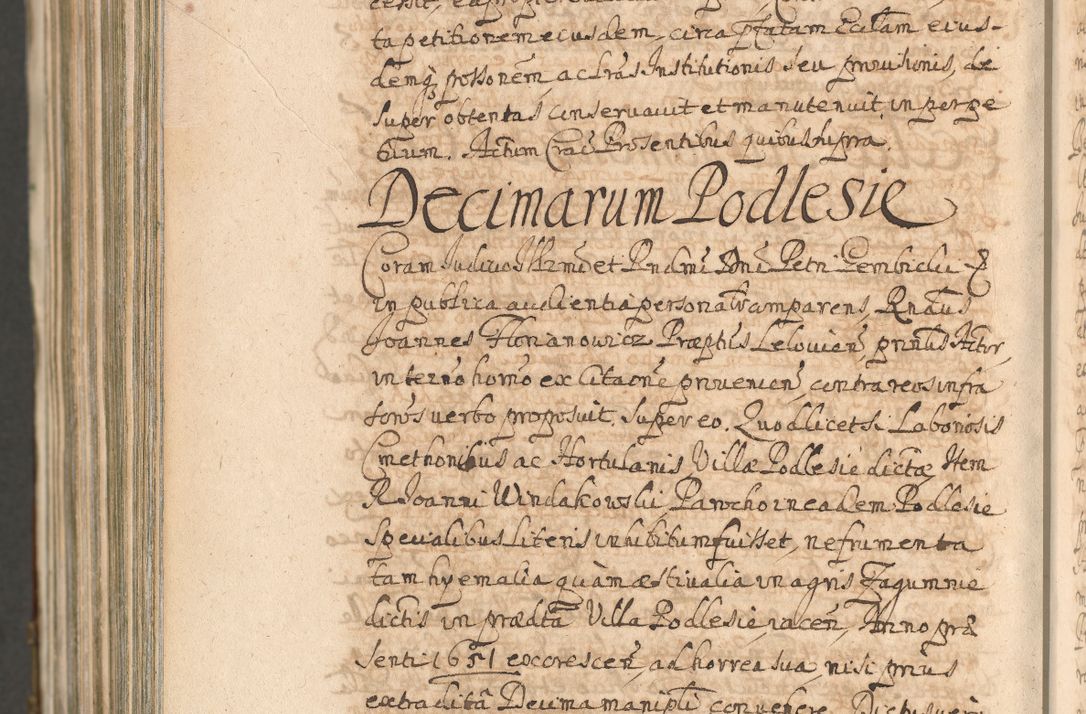 ta petitionem ecusdem, circa pfatam Ecclam eius-
demq, possonem, ac lras Institutionis seu provisionis, de
super obtentas conservavit et manutenuit in perpe
tuum. Actum Crac Presentibus quibus supra.
Decimarum Podlesie
Coram Judicio Illrmi et Rndmi Dni Petri Gembicki
in publica audientia personalr comparens, Rndus
Joannes Florianowicz Præptus Lelovien, principlis Actor,
in termo horno ex Citaone provenien, contra reos infra
towos verbo proposuit. Super eo. Quod licet si Laboriosis
Cmethonibus ac Hortulanis Villæ Podlesie dictæ, Item
R. Joanni Windakowski Parocho in eadem Podlesie
Specialibus literis inhibitum fuisset, ne frumenta
tam hyemalia quàm æstivalia in agris Zagumnie
dictis in prædta Villa Podlesie, iacen, Anno præ
senti 1651 excrescen, ad horrea sua, nisi prius
extradita Decima manipli convehere. Dicti